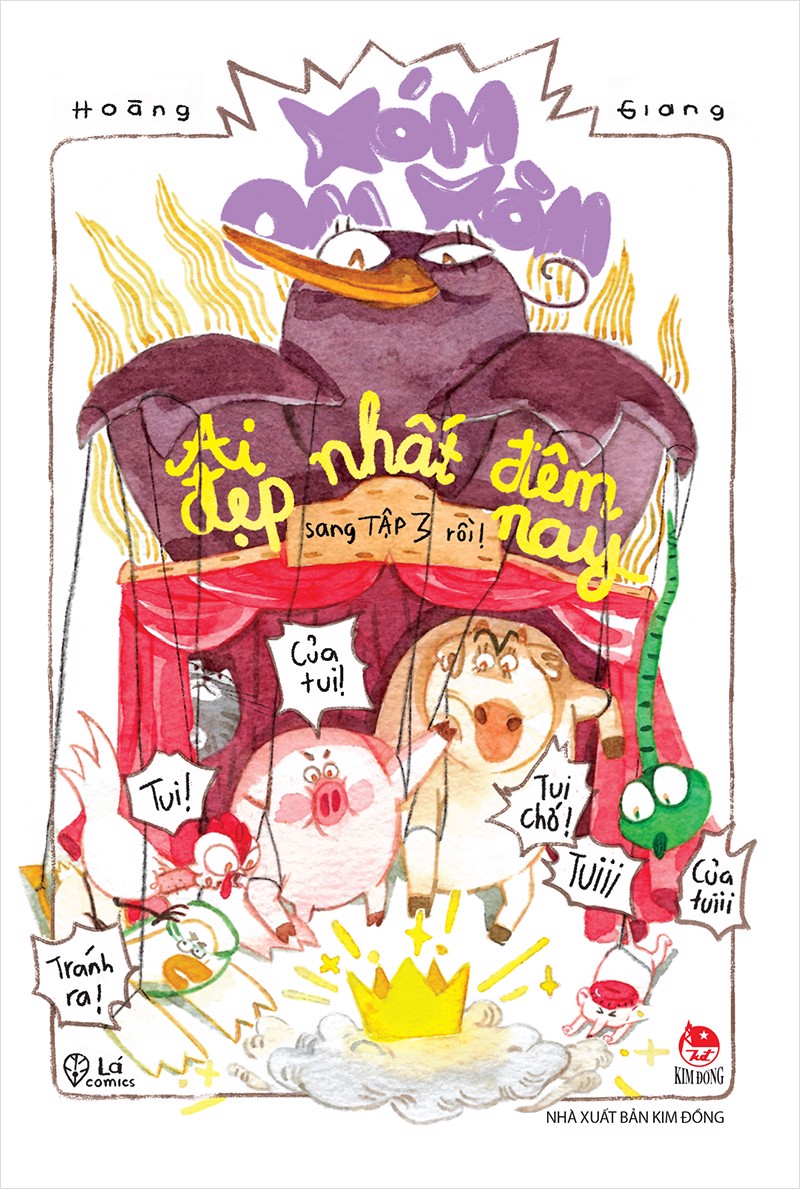 Hoàng Giang
XÓM
OM XÒM
Ai đẹp nhất đêm nay
sang TẬP 3 rồi!
Của
tui!
Tui!
Tui
chớ!
TUiii
Của
tuiii
Tránh
ra!
Lá
comics
KIM ĐỒNG
NHÀ XUẤT BẢN KIM ĐỒNG